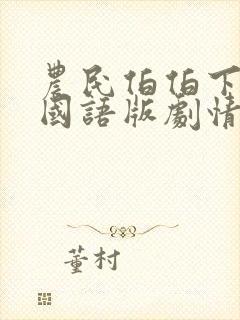 農民伯伯下
國語版劇情
董村